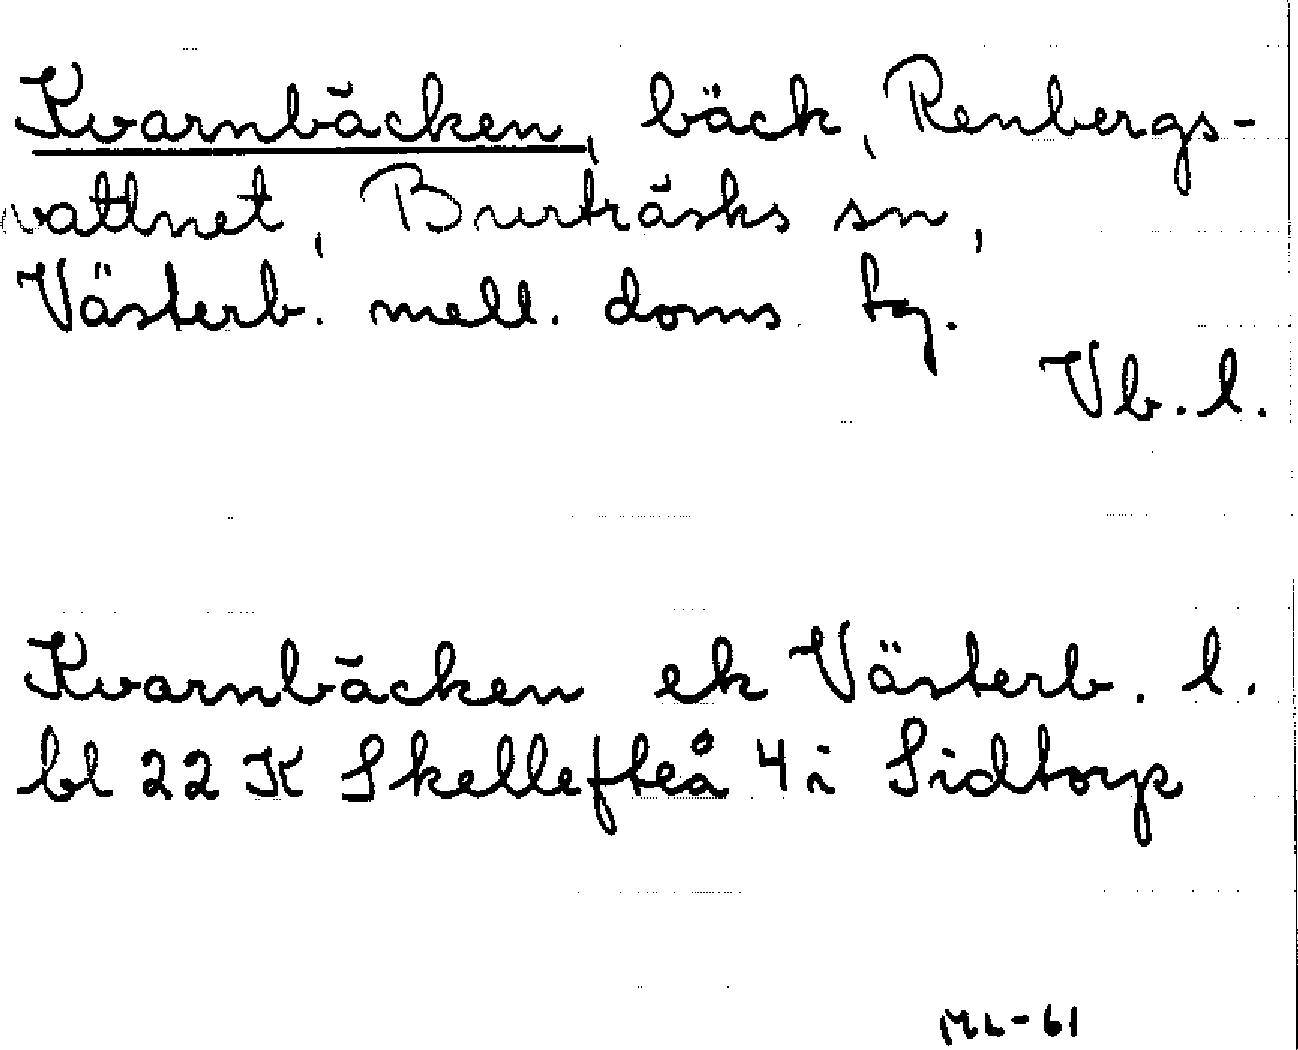 Kvarnbäcken, bäck, Renbergs-
vattnet, Burträsks sn,
Västerb. mell. doms tg.
Vb. l.
Kvarnbäcken ek Västerb. l.
bl 22 K Skellefteå 4 i Sidtorp
ML-61